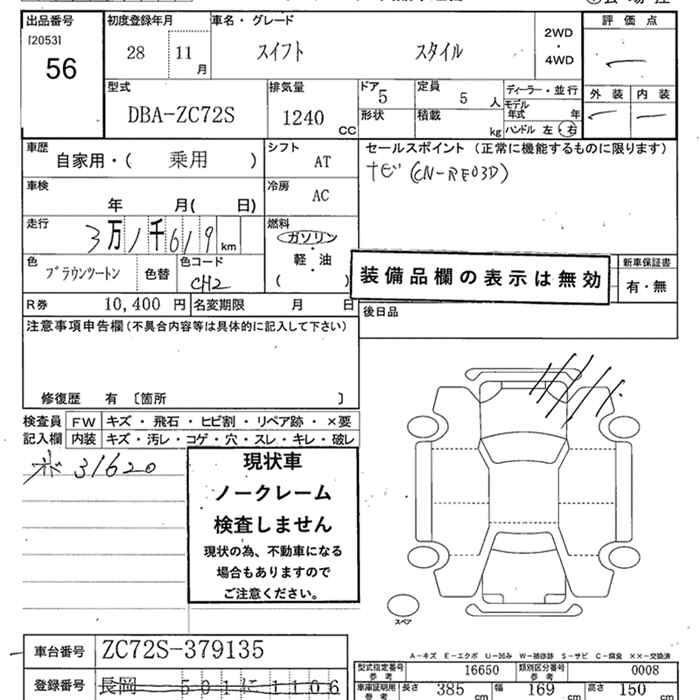 出品番号 初度登録年月 車名・グレード 評価点
[2053] 56 28 11月 スイフト スタイル 2WD・4WD
外装 内装
型式 排気量 ドア 定員 ディーラー・並行
DBA-ZC72S 1240 CC 5 5人 モデル年式 年
形状 積載 kg ハンドル 左・右
車歴 シフト セールスポイント(正常に機能するものに限ります)
自家用・( 乗用 ) AT ナビ(CN-RE03D)
車検 年 月( 日) 冷房 AC
走行 3万1千619km 燃料 ガソリン・軽・油 ( )
色 ブラウンツートン 色替 色コード CH2
装備品欄の表示は無効
新車保証書 有・無
R券 10,400円 名変期限 月 日
後日品
注意事項申告欄(不具合内容等は具体的に記入して下さい)
修復歴 有 〔箇所 〕
検査員記入欄 FW キズ・飛石・ヒビ割・リペア跡・×要
内装 キズ・汚レ・コゲ・穴・スレ・キレ・破レ
31620
現状車
ノークレーム
検査しません
現状の為、不動車になる
場合もありますので
ご注意ください。
スペア
車台番号 ZC72S-379135
A-キズ E-エクボ U-凹み W-補修跡 S-サビ C-腐食 ××-交換済
型式指定番号 参考 16650 類別区分番号 参考 0008
登録番号 長岡 501 に 1106
車庫証明用参考 長さ 385cm 幅 169cm 高さ 150cm